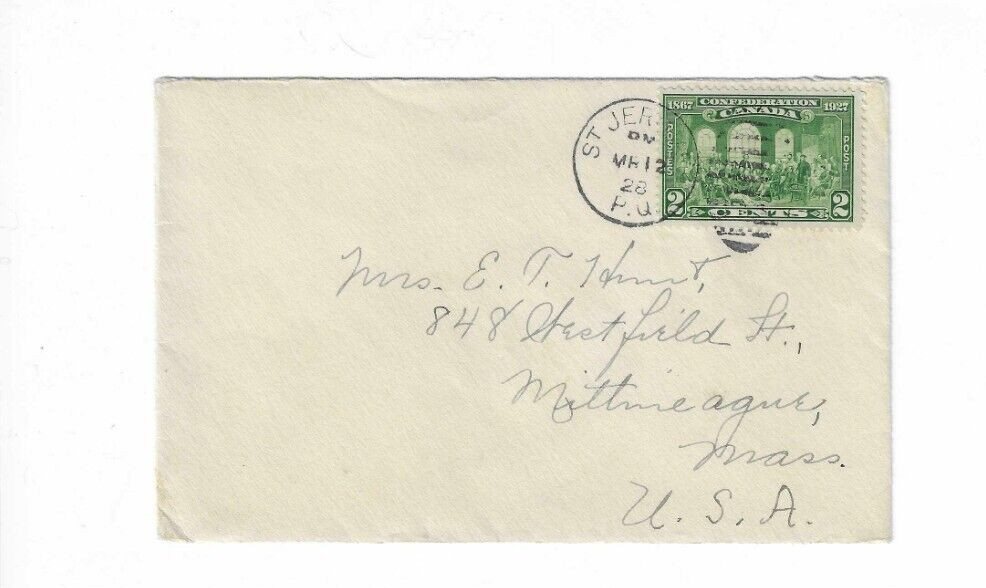 1867 CONFEDERATION 1927
CANADA
POSTES POST
2 CENTS 2
PM
MR 12
28
P.Q.
Mrs. E. T. Hunt,
848 Westfield St.,
Mittineague,
Mass.
U. S. A.